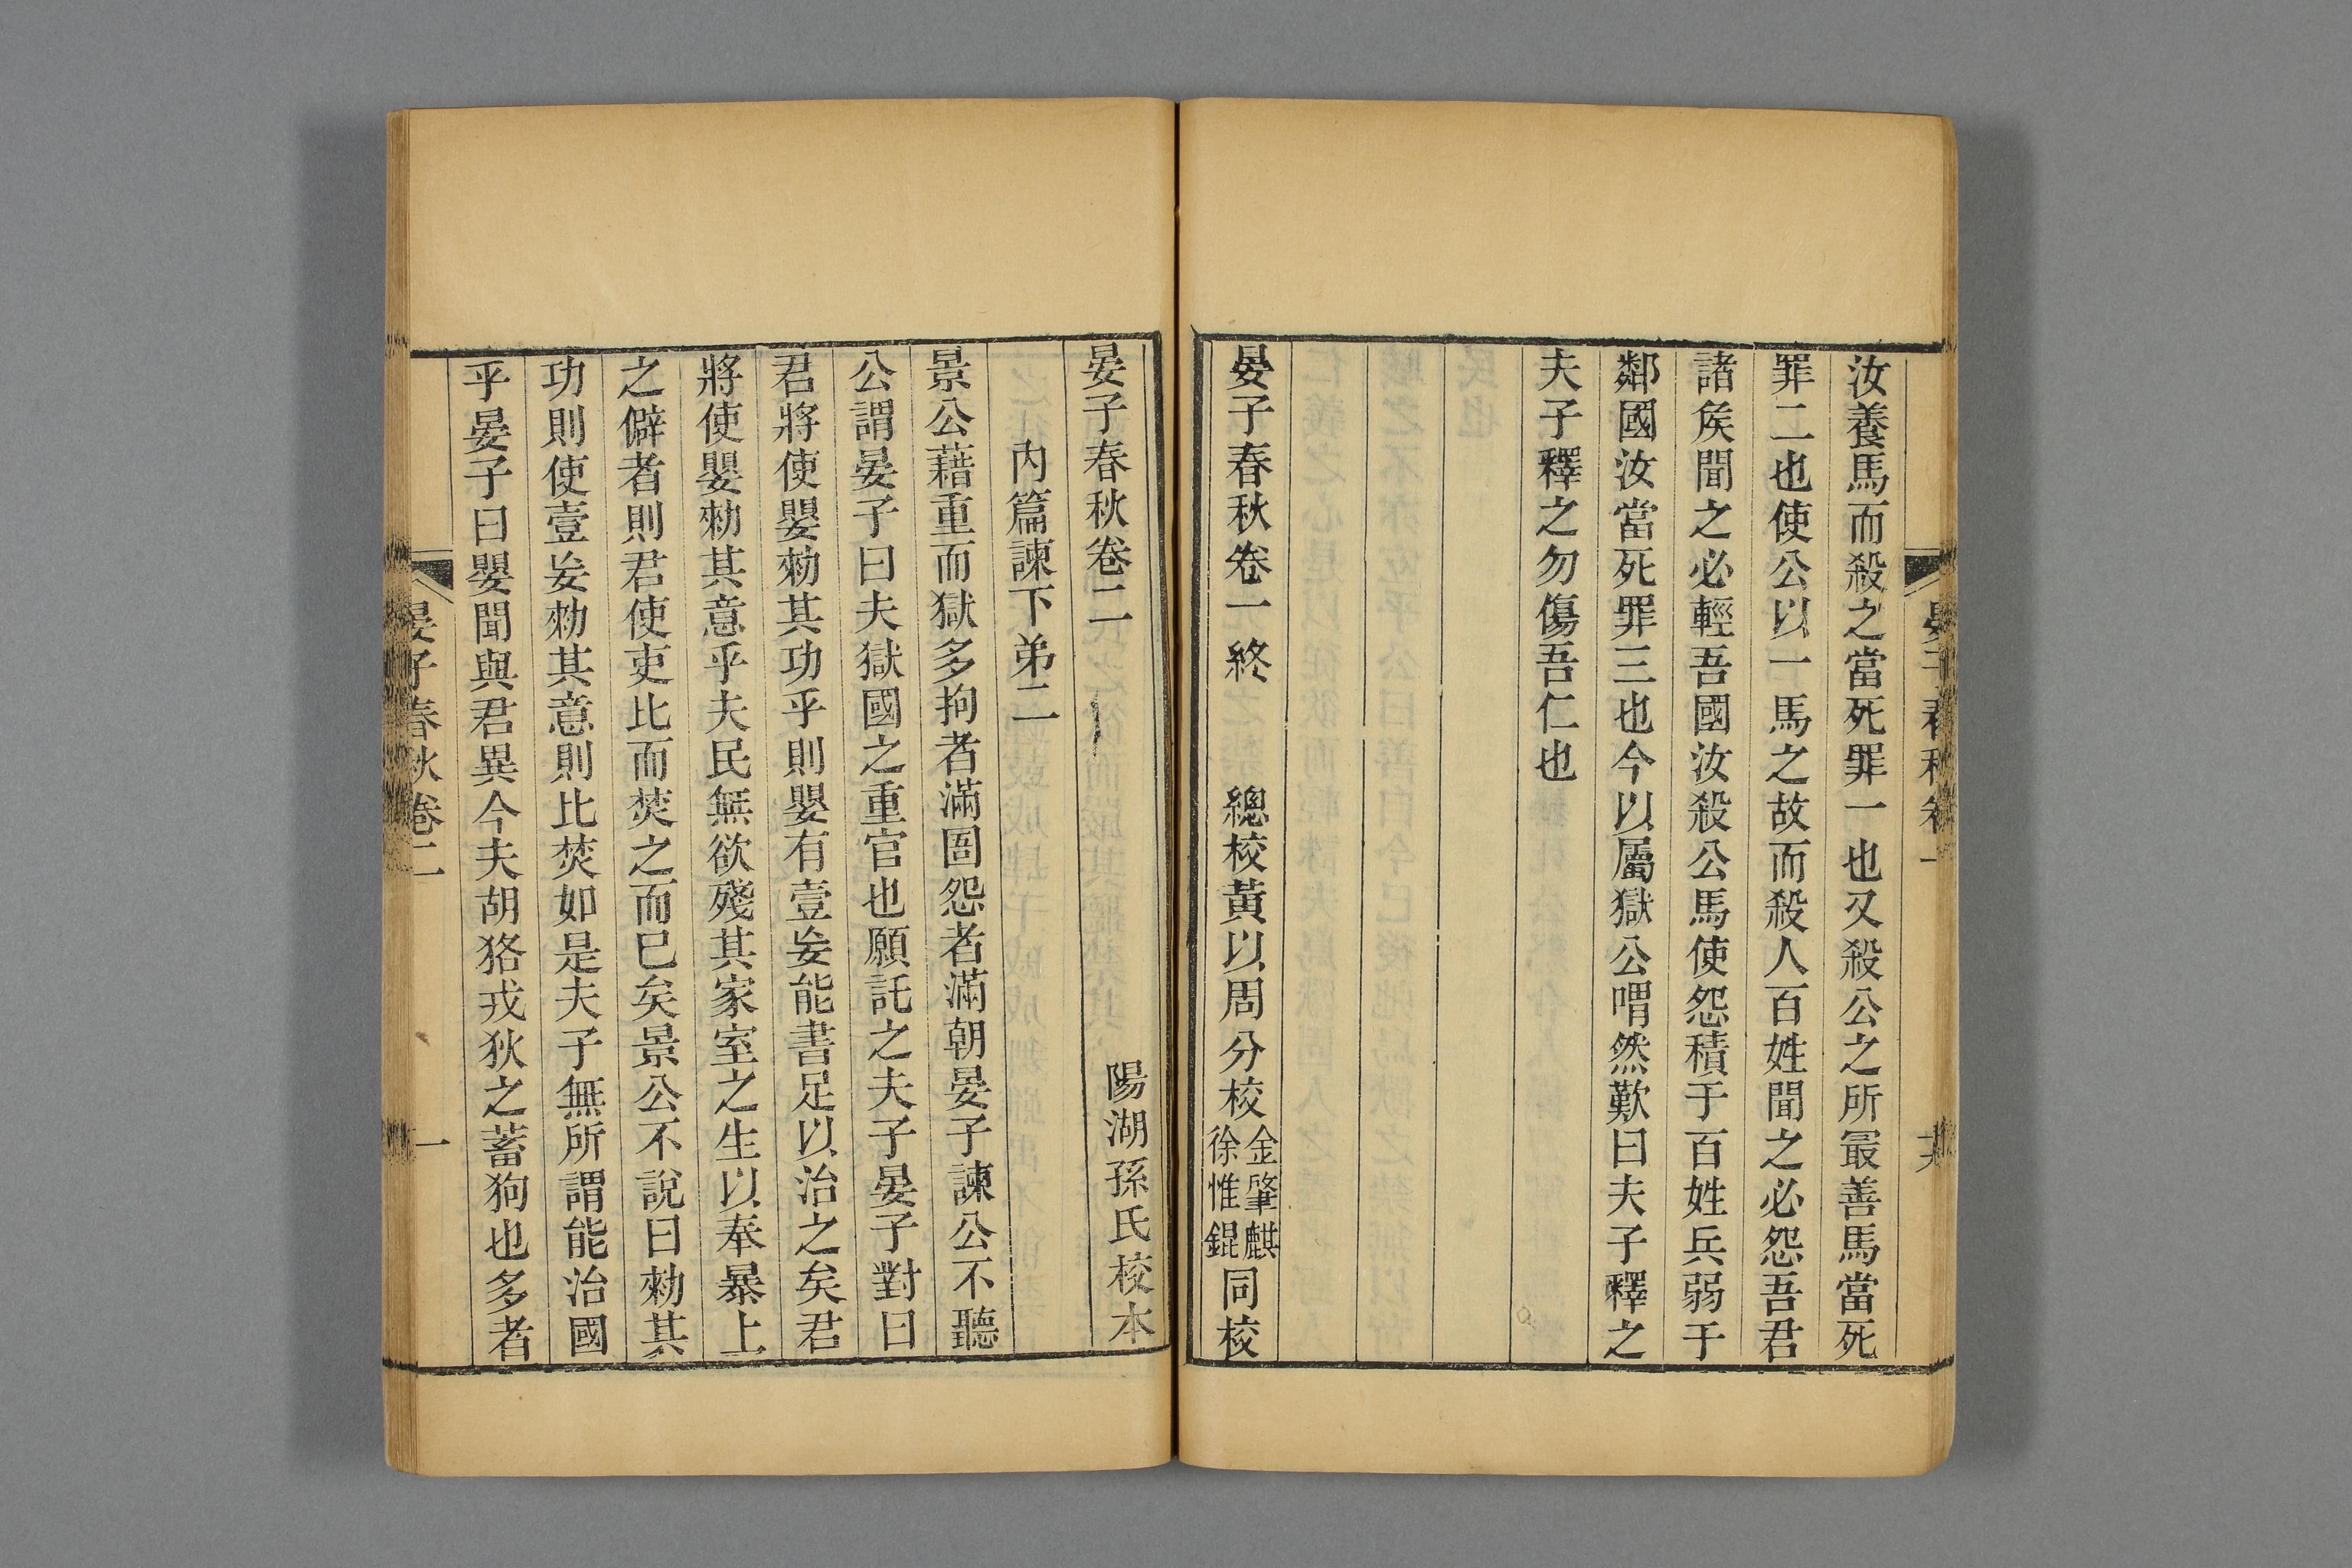 汝養馬而殺之當死罪一也又殺公之所最善馬當死
罪二也使公以一馬之故而殺人百姓聞之必怨吾君
諸矦聞之必輕吾國汝殺公馬使怨積于百姓兵弱于
鄰國汝當死罪三也今以屬獄公喟然歎曰夫子釋之
夫子釋之勿傷吾仁也
晏子春秋卷一終 總校黃以周分校金肇麒徐惟錕同校
晏子春秋卷二 陽湖孫氏校本
內篇諫下弟二
景公藉重而獄多拘者滿圄怨者滿朝晏子諫公不聽
公謂晏子曰夫獄國之重官也願託之夫子晏子對曰
君將使嬰勑其功乎則嬰有壹妄能書足以治之矣君
將使嬰勑其意乎夫民無欲殘其家室之生以奉暴上
之僻者則君使吏比而焚之而已矣景公不說曰勑其
功則使壹妄勑其意則比焚如是夫子無所謂能治國
乎晏子曰嬰聞與君異今夫胡狢戎狄之蓄狗也多者
晏子春秋卷二 一